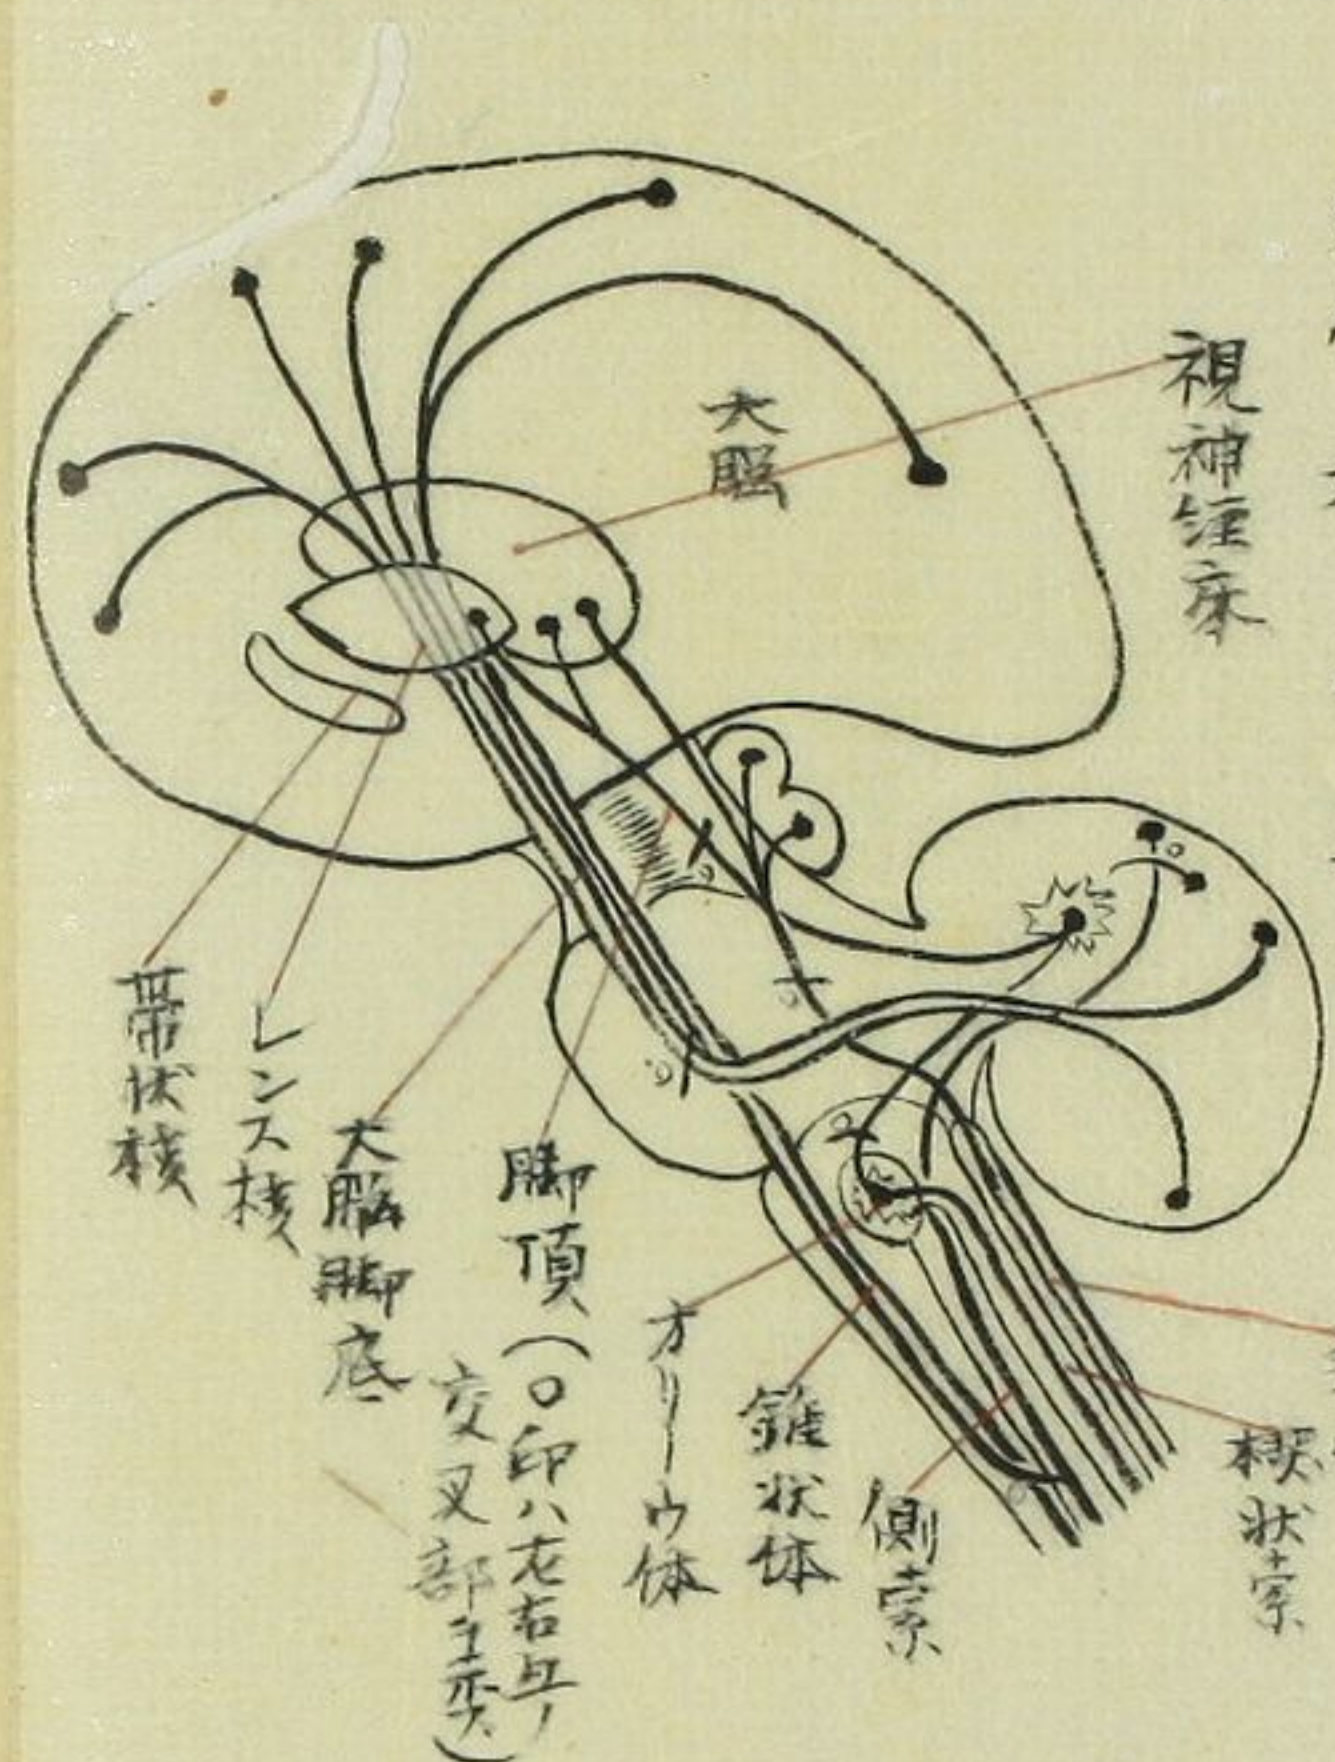 視神経床
大脳
帯状核
レンズ核
大脳脚底
脚頂(〇印ハ左右
交叉部ヲ示ス)
オリーウ体
錐状体
側索
状索